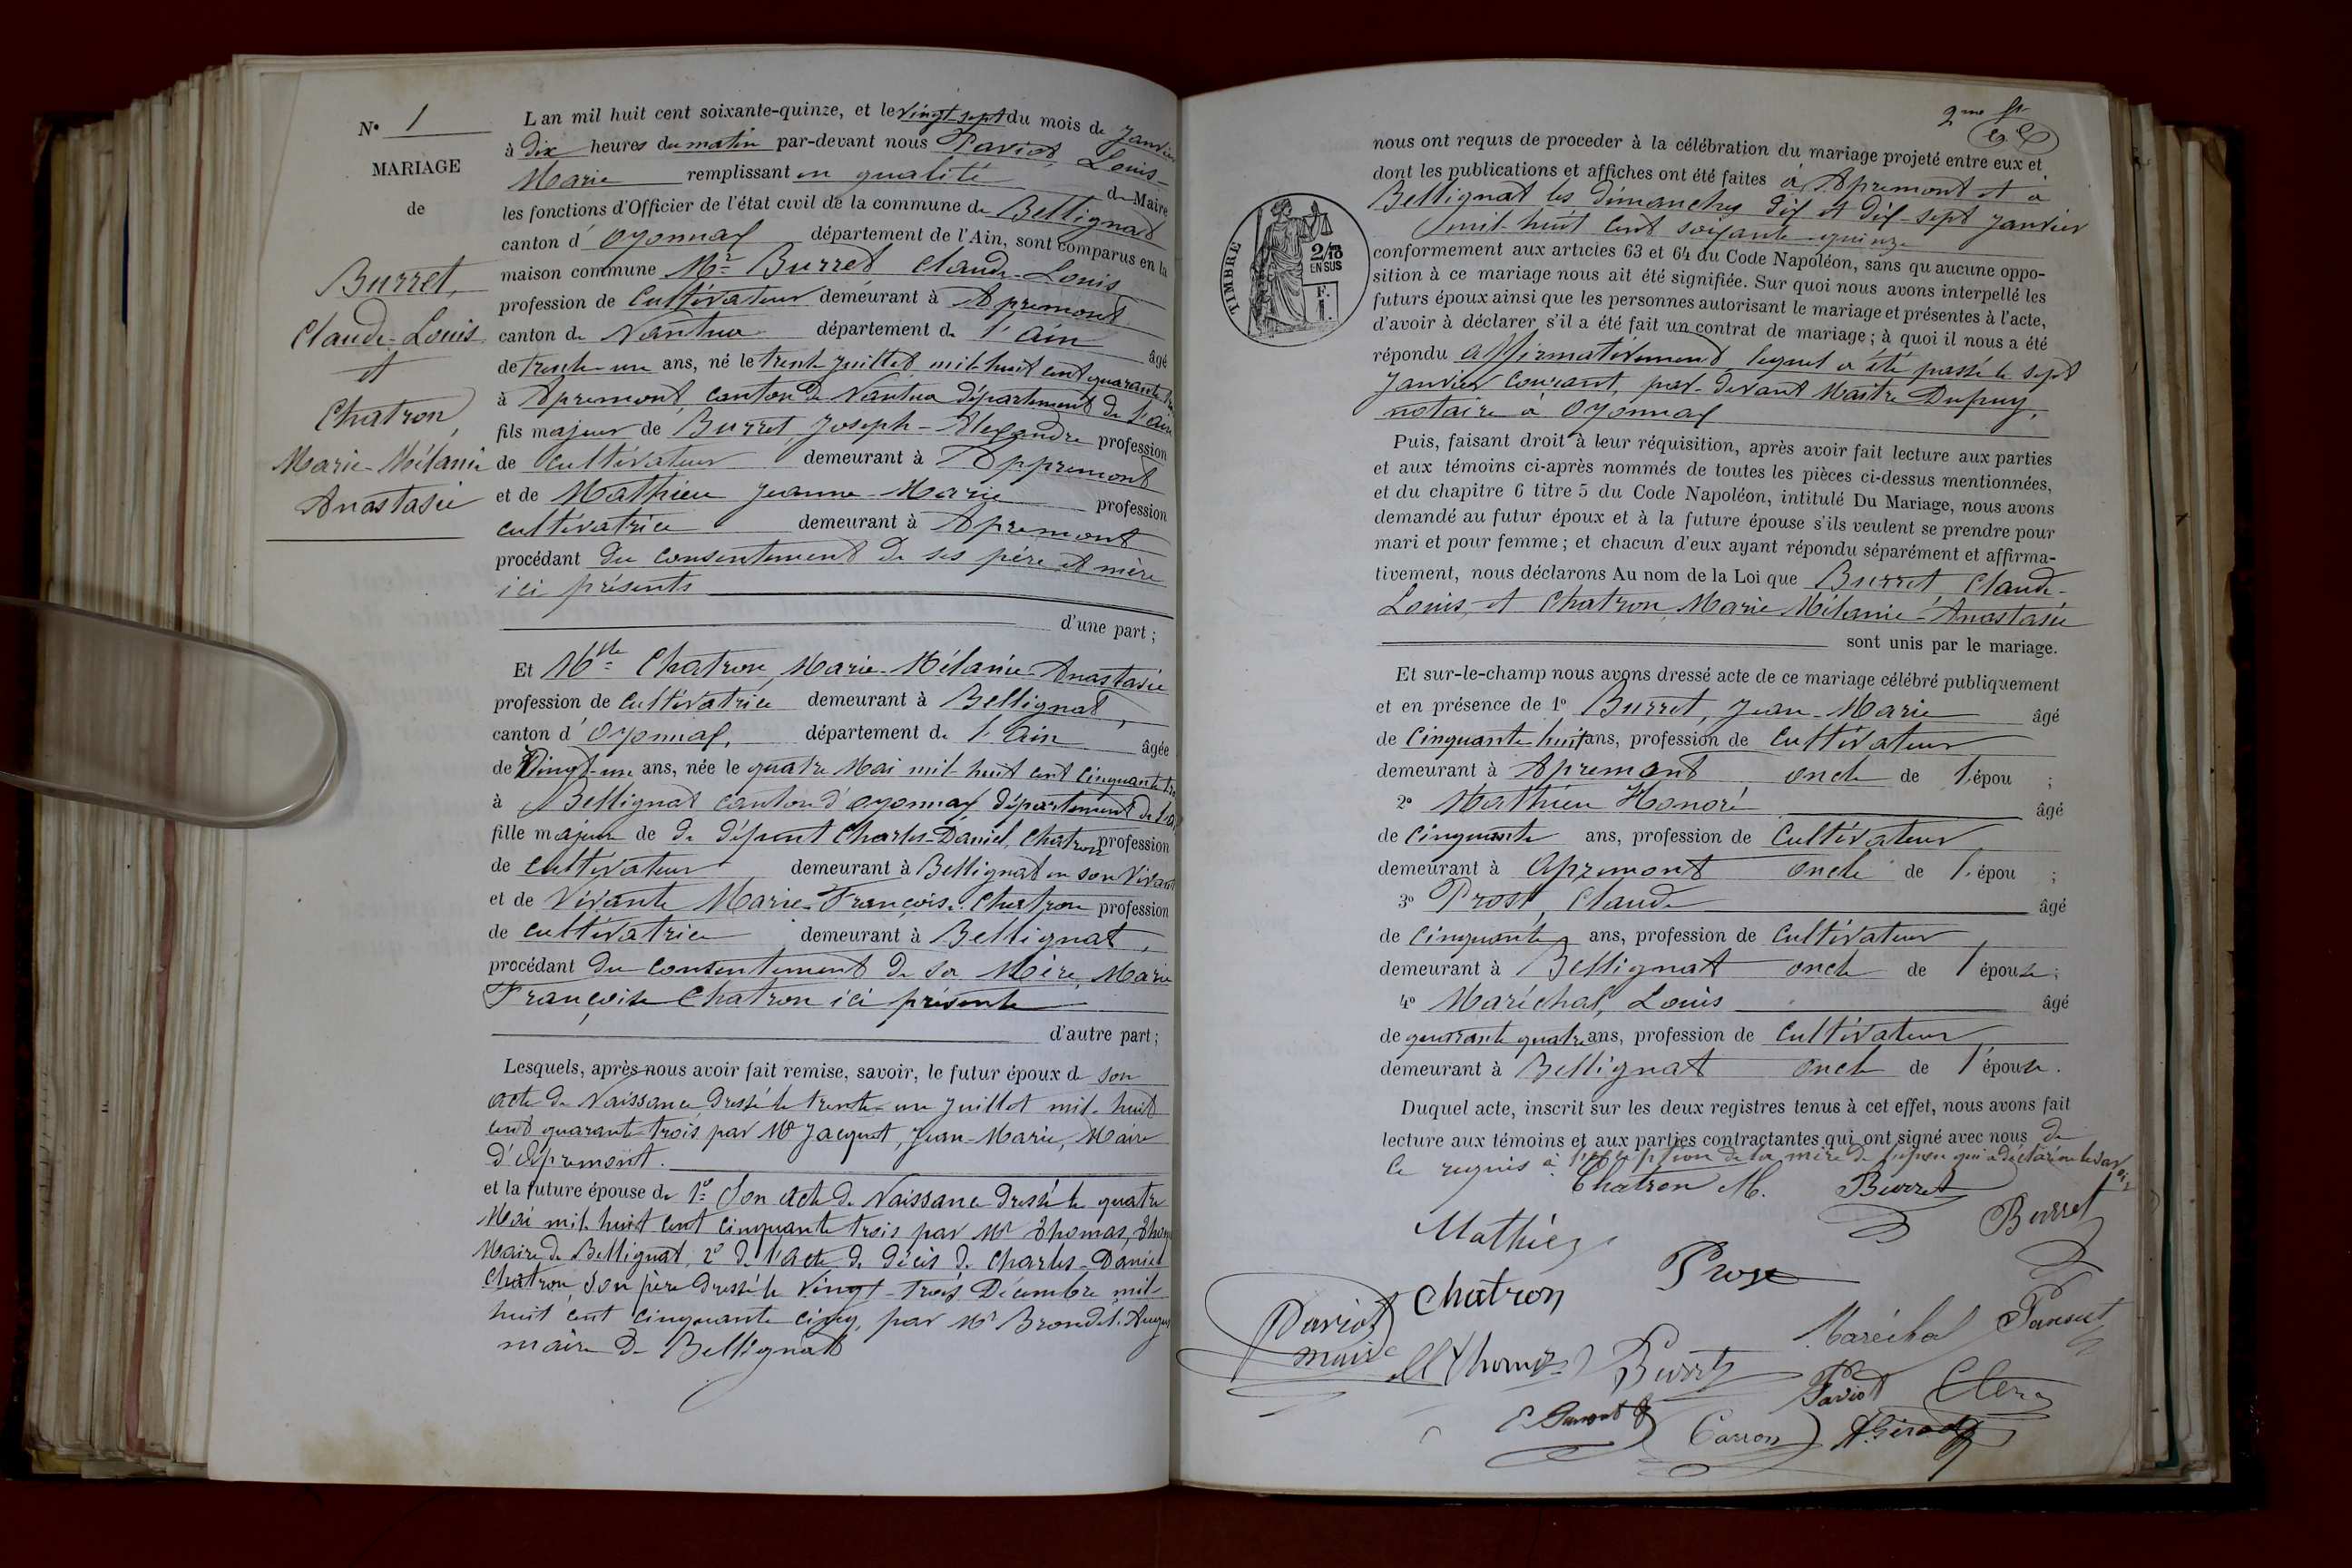 N° 1
MARIAGE
de
Burret,
Claude-Louis
et
Chatron,
Marie-Mélanie
Anastasie
L an mil huit cent soixante-quinze, et le vingt-sept du mois de Janvier
à dix heures du matin par-devant nous Paviot, Louis-
Marie remplissant en qualité de Maire
les fonctions d'Officier de l'état civil de la commune de Bellignat
canton d' Oyonnax département de l'Ain, sont comparus en la
maison commune Mr Burret Claude-Louis
profession de Cultivateur demeurant à Apremont
canton de Nantua département de l'Ain âgé
de trente-un ans, né le trente Juillet mil-huit cent quarante
à Apremont, canton de Nantua département de l'ain
fils majeur de Burret, Joseph-Alexandre profession
de Cultivateur demeurant à Appremont
et de Mathieu Jeanne-Marie profession
cultivatrice demeurant à Apremont
procédant du consentement de ses père et mère
ici présents
d'une part ;
Et Mlle Chatron, Marie-Mélanie-Anastasie
profession de Cultivatrice demeurant à Bellignat,
canton d' Oyonnax, département de l'Ain âgée
de Vingt-un ans, née le quatre Mai mil-huit cent cinquante
à Bellignat canton d'Oyonnax, département de l'ai
fille majeure de de défunt Charles-Daniel, Chatron profession
de cultivateur demeurant à Bellignat en son Vivant
et de Vivante Marie-Françoise Chatron profession
de cultivatrice demeurant à Bellignat,
procédant du consentement de sa Mère, Marie
Françoise Chatron ici présente
d'autre part ;
Lesquels, après nous avoir fait remise, savoir, le futur époux de son
acte de Naissance dressé le trente-un Juillet mil-huit
cent quarante-trois par Mr Jacquet, Jean-Marie, Maire
d'Apremont.
et la future épouse de 1° Son acte de Naissance dressé le quatre
Mai mil huit cent cinquante trois par Mr Thomas,
Maire de Bellignat, 2° de l'acte de décès de Charles-Daniel
Chatron, Son père dressé le Vingt-trois Décembre mil-
huit cent cinquante cinq, par Mr
maire de Bellignat
2me
nous ont requis de proceder à la célébration du mariage projeté entre eux et
dont les publications et affiches ont été faites à Apremont et à
Bellignat les dimanches dix et dix-sept Janvier
mil-huit cent soixante-quinze
TIMBRE
2/10
EN SUS
F.
conformement aux articles 63 et 64 du Code Napoléon, sans qu aucune oppo-
sition à ce mariage nous ait été signifiée. Sur quoi nous avons interpellé les
futurs époux ainsi que les personnes autorisant le mariage et présentes à l'acte,
d'avoir à déclarer s'il a été fait un contrat de mariage ; à quoi il nous a été
répondu affirmativement lequel a été passé le sept
Janvier courant, par-devant Maître Dupuy,
notaire à Oyonnax
Puis, faisant droit à leur réquisition, après avoir fait lecture aux parties
et aux témoins ci-après nommés de toutes les pièces ci-dessus mentionnées,
et du chapitre 6 titre 5 du Code Napoléon, intitulé Du Mariage, nous avons
demandé au futur époux et à la future épouse s'ils veulent se prendre pour
mari et pour femme ; et chacun d'eux ayant répondu séparément et affirma-
tivement, nous déclarons Au nom de la Loi que Burret, Claude-
Louis, et Chatron, Marie-Mélanie-Anastasie
sont unis par le mariage.
Et sur-le-champ nous avons dressé acte de ce mariage célébré publiquement
et en présence de 1° Burret, Jean-Marie âgé
de Cinquante-huit ans, profession de Cultivateur
demeurant à Apremont oncle de l'épou ;
2° Mathieu Honoré âgé
de cinquante ans, profession de Cultivateur
demeurant à Apremont oncle de l'épou ;
3° Prost, Claude âgé
de cinquante ans, profession de Cultivateur,
demeurant à Bellignat oncle de l'épouse ;
4° Maréchal, Louis âgé
de quarante quatre ans, profession de Cultivateur
demeurant à Bellignat oncle de l'épouse.
Duquel acte, inscrit sur les deux registres tenus à cet effet, nous avons fait
lecture aux témoins et aux parties contractantes qui ont signé avec nous de
ce requis à l'exception de la mère de l'époux qui a déclaré ne le savoir
Chatron M. Burret
Burret
Mathieu
Prost
Chatron
Paviot
maire
Maréchal
Thomas
Burret
Paviot
Clerc
Carron